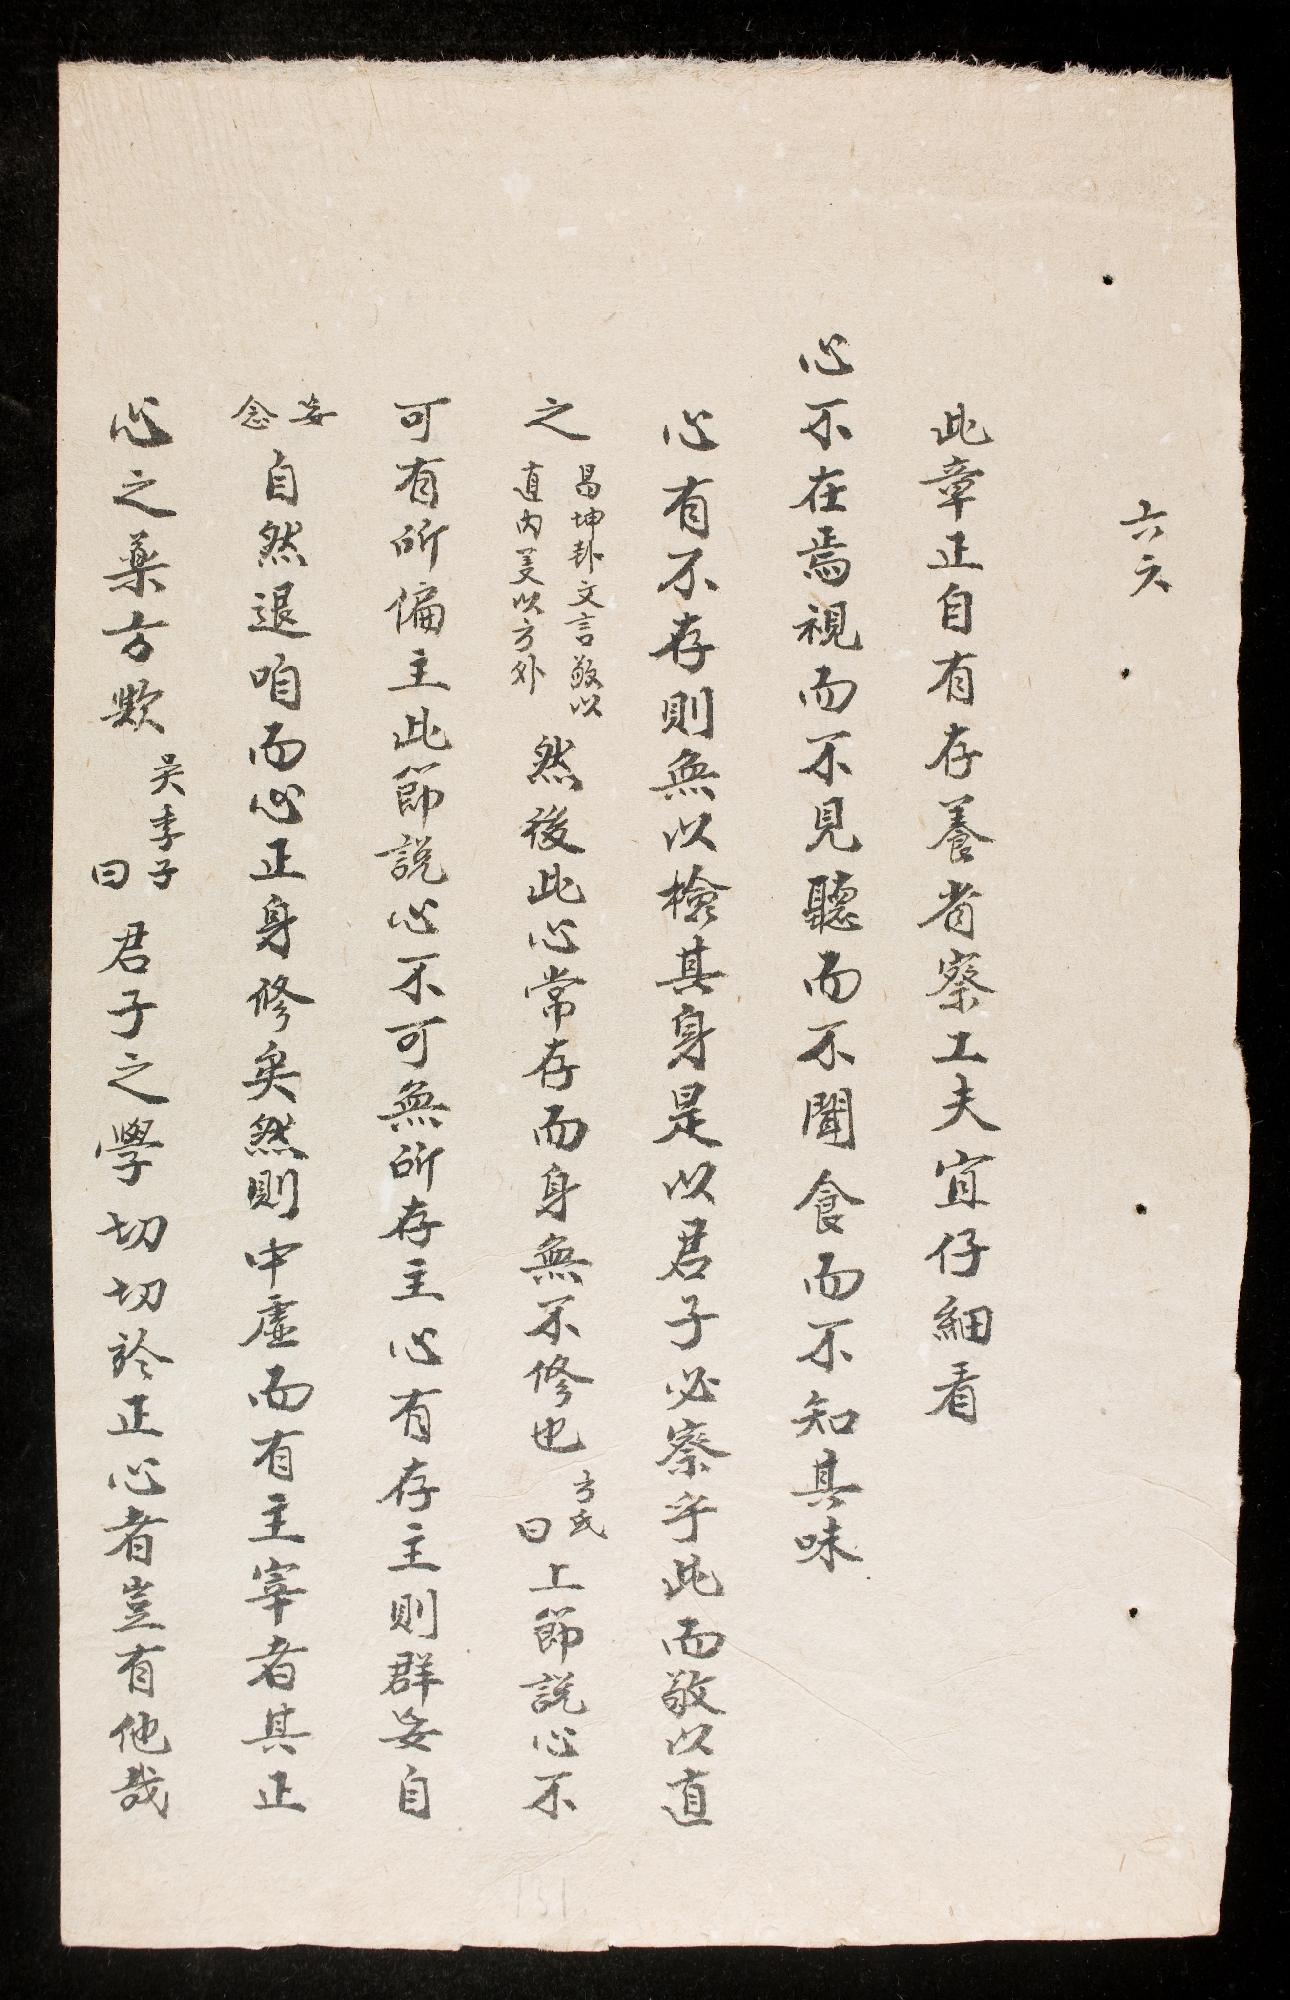 六六
此章正自有存養省察工夫宜仔細看
心不在焉視而不見聽而不聞食而不知其味
心有不存則無以檢其身是以君子必察乎此而敬以直
之
易坤卦文言敬以
直內義以方外
然後此心常存而身無不修也
方氏
曰
上節說心不
可有所偏主此節說心不可無所存主心有存主則群妄自
妄
念
自然退咱而心正身修矣然則中虛而有主宰者其正
心之藥方歟
吴季子
曰
君子之學切切於正心者豈有他哉
131